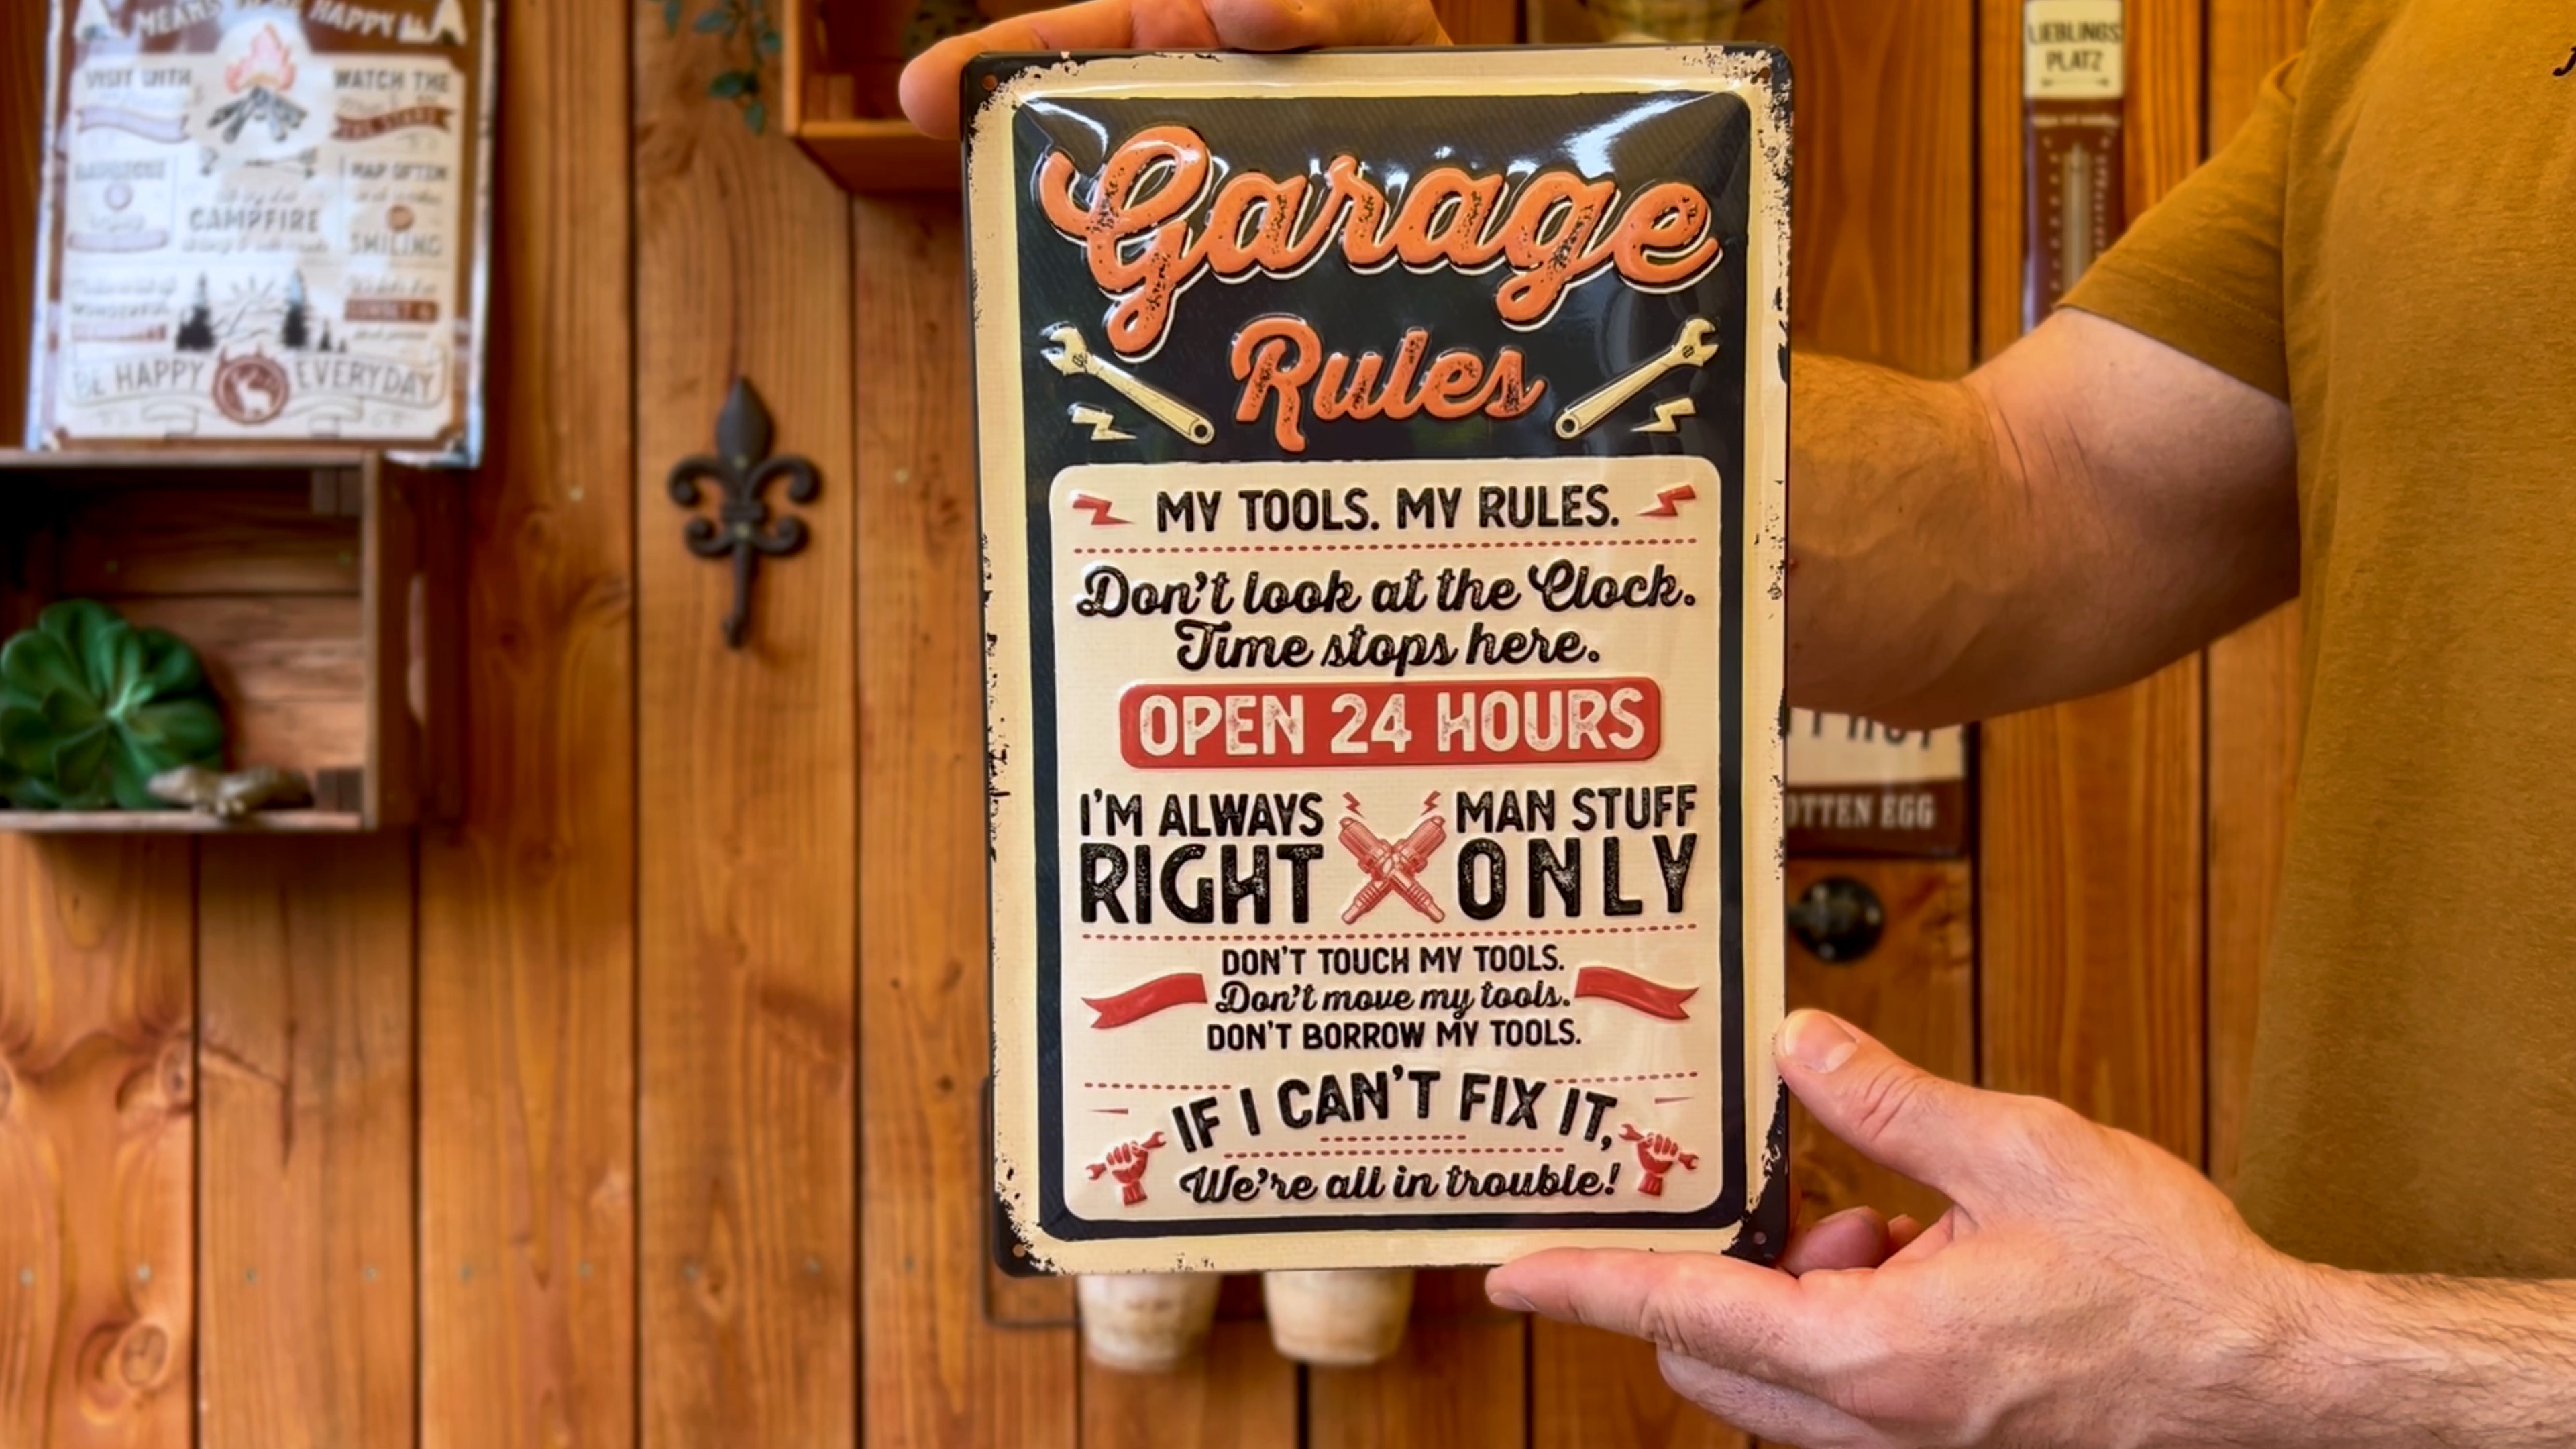 MEANS HAPPY
VISIT WITH
WATCH THE
BARBECUE
NAP OFTEN
CAMPFIRE
SMILING
WONDERFUL
BE HAPPY EVERYDAY
Garage
Rules
MY TOOLS. MY RULES.
Don't look at the Clock.
Time stops here.
OPEN 24 HOURS
I'M ALWAYS
RIGHT
MAN STUFF
ONLY
DON'T TOUCH MY TOOLS.
Don't move my tools.
DON'T BORROW MY TOOLS.
IF I CAN'T FIX IT,
We're all in trouble!
LIEBLINGS
PLATZ
OTTEN EGG